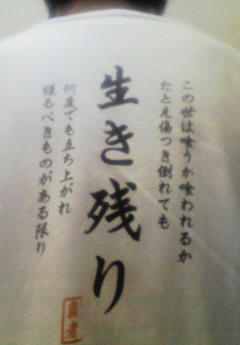 この世は喰うか喰われるか
たとえ傷つき倒れても
生き残り
何度でも立ち上がれ
護るべきものがある限り